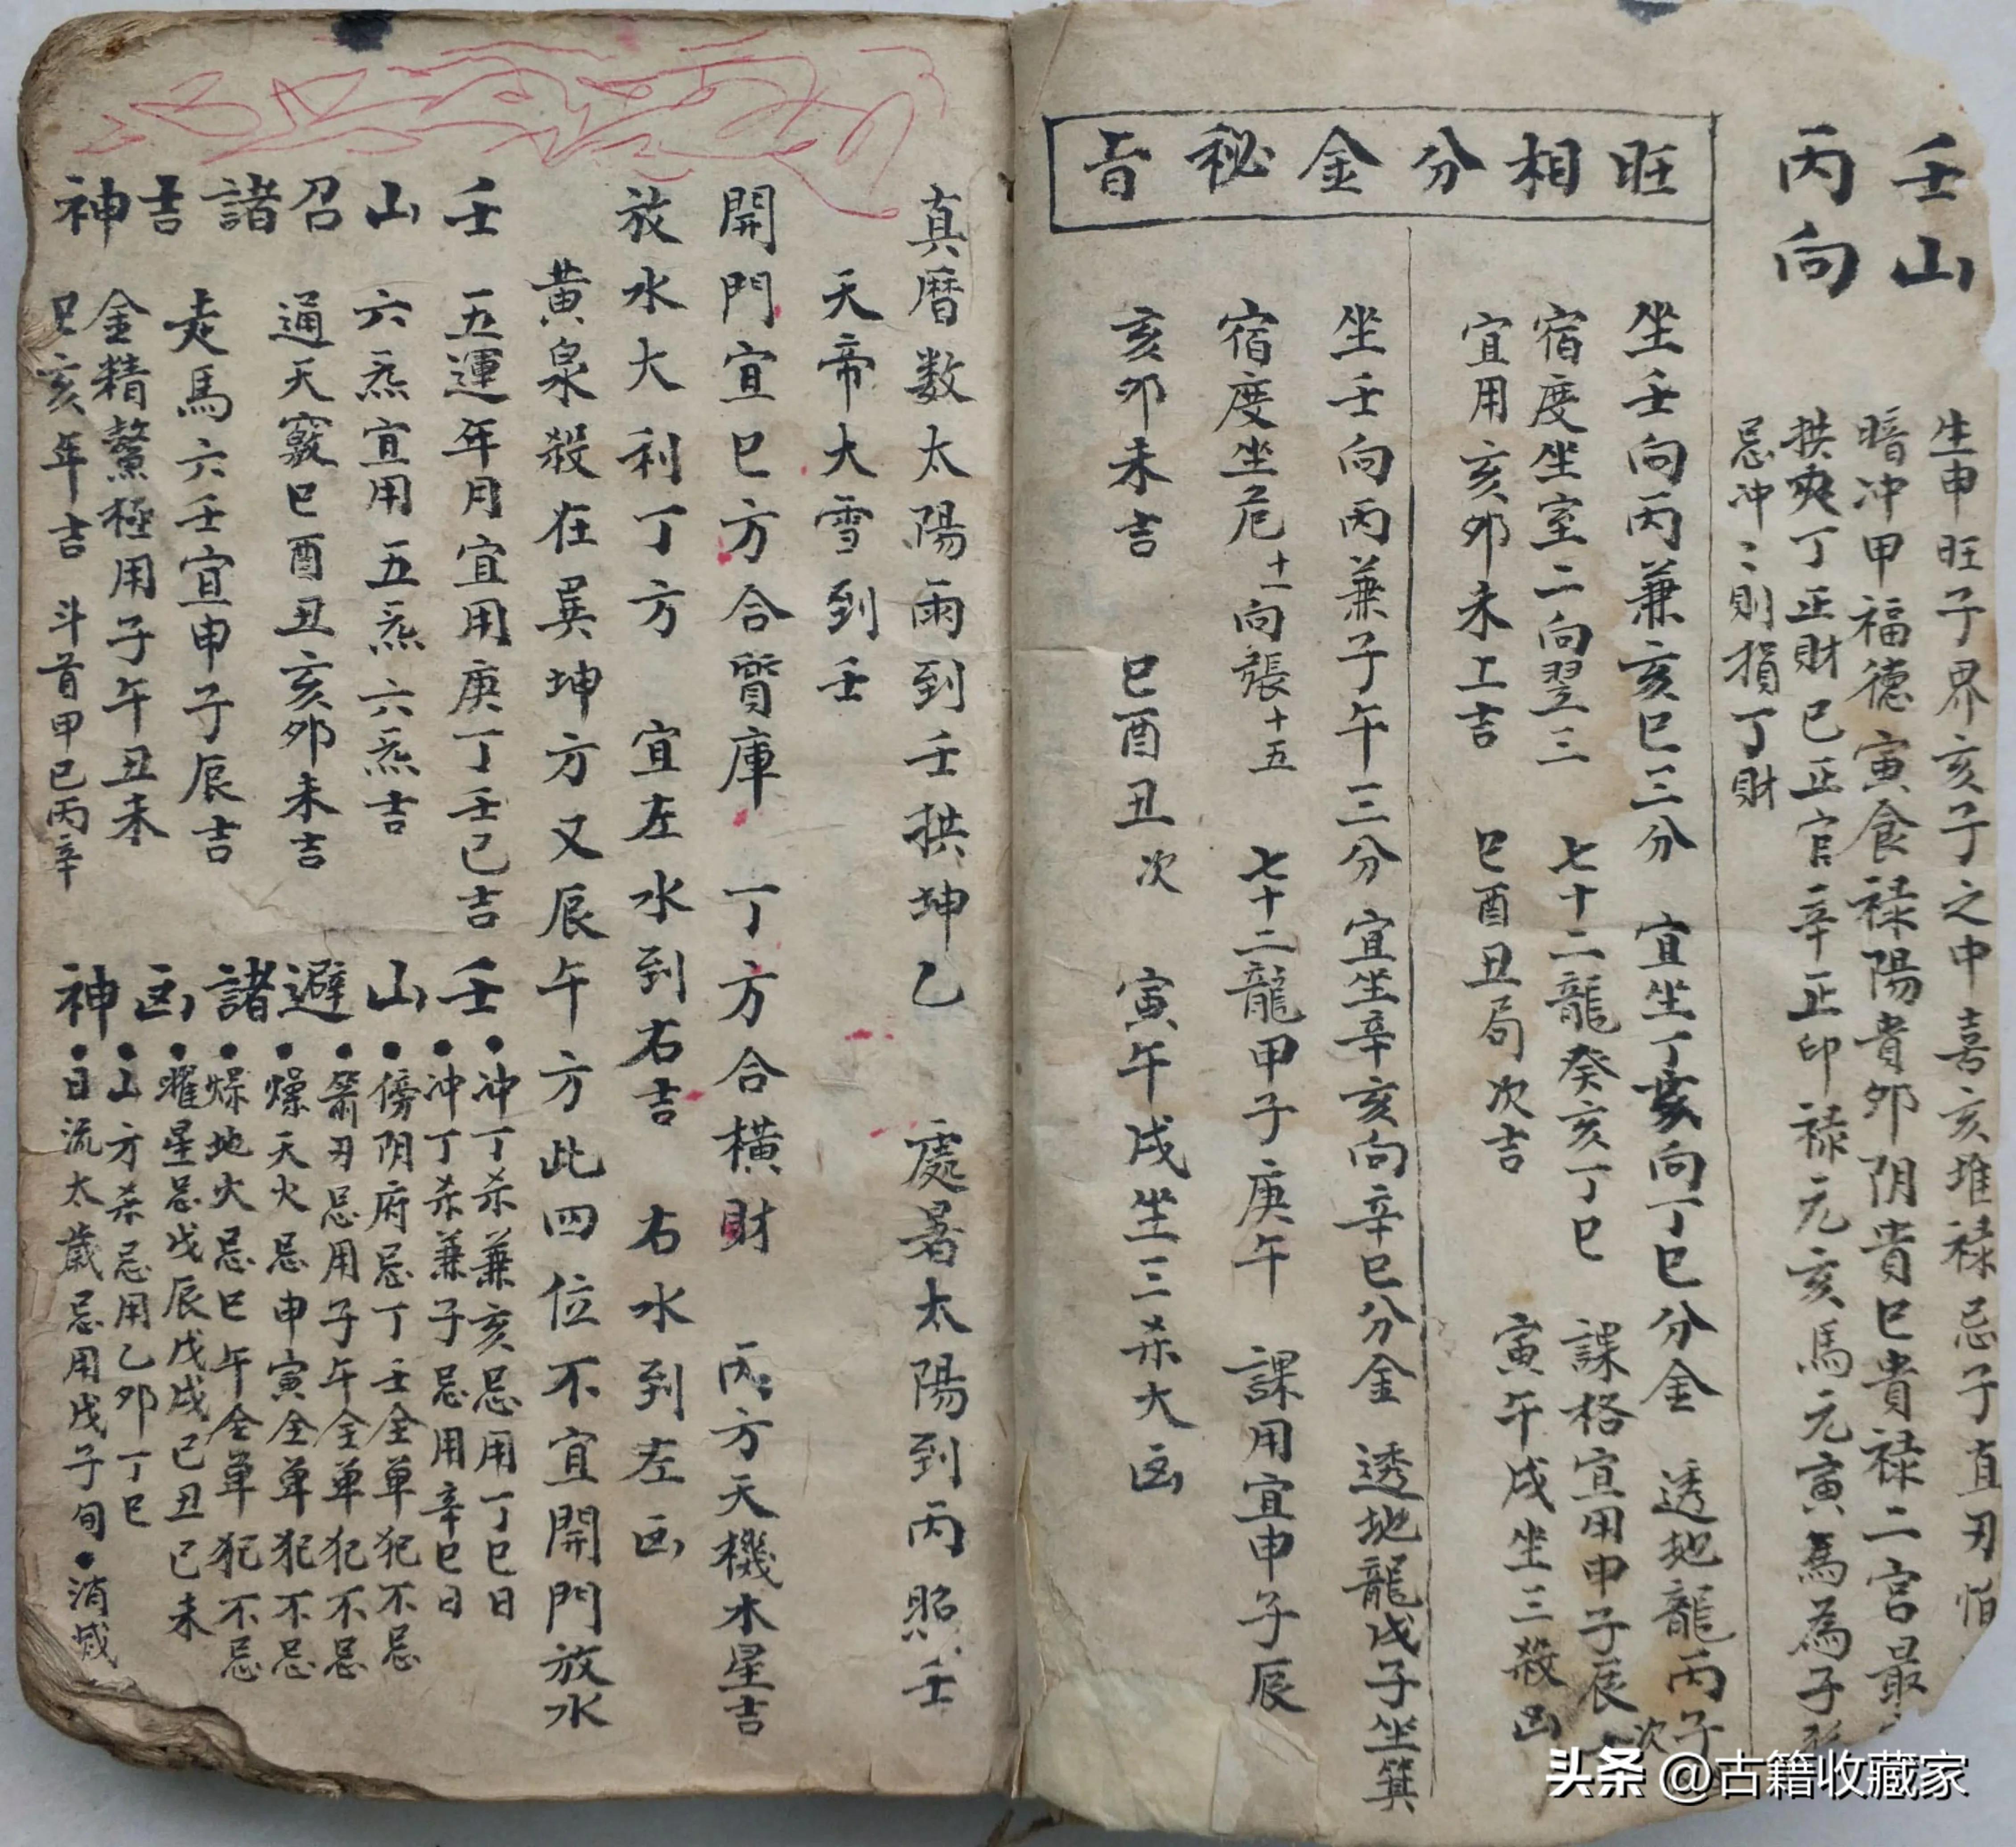 壬山
丙向
生申旺子界亥子之中喜亥堆禄忌子直刃怕
暗冲甲福德寅食禄陽貴卯阴貴巳貴禄二宫最
拱夾丁正財己正官辛正印禄元亥馬元寅為為子
忌冲〻則損丁財
旺相分金秘旨
坐壬向丙兼亥巳三分 宜坐丁亥向丁巳分金 透地龍丙子
宿度坐室二向翌三 七十二龍癸亥丁巳 課格宜用申子辰次
宜用亥卯未工吉 巳酉丑局次吉 寅午戌坐三殺凶
坐壬向丙兼子午三分 宜坐辛亥向辛巳分金 透地龍戊子坐箕
宿度坐危十一向張十五 七十二龍甲子庚午 課用宜申子辰
亥卯未吉 巳酉丑次 寅午戌坐三杀大凶
真曆数太陽雨到壬拱坤乙 處暑太陽到丙照壬
天帝大雪到壬
開門宜巳方合質庫 丁方合横財 丙方天機木星吉
放水大利丁方 宜左水到右吉 右水到左凶
黄泉殺在巽坤方又辰午方此四位不宜開門放水
壬山召諸吉神
五運年月宜用庚丁壬己吉
六炁宜用五炁六炁吉
通天竅巳酉丑亥卯未吉
走馬六壬宜申子辰吉
金精鰲極用子午丑未
巳亥年吉 斗首甲己丙辛
壬山避諸凶神
•冲丁杀兼亥忌用丁巳日
•冲丁杀兼子忌用辛巳日
•傍阴府忌丁壬全单犯不忌
•箭刃忌用子午全单犯不忌
•燥天火忌申寅全单犯不忌
•燥地火忌巳午全单犯不忌
•曜星忌戊辰戊戌己丑己未
•山方杀忌用乙卯丁巳
•日流太歲忌用戊子旬•消威
头条 @古籍收藏家